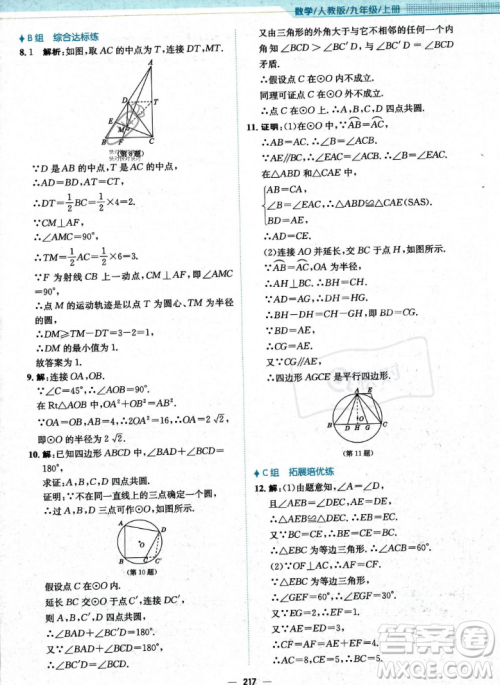 数学/人教版/九年级/上册
B组 综合达标练
8.1 解析:如图,取AC的中点T,连接DT,MT.
(第8题)
∵D是AB的中点,T是AC的中点,
∴AD=DB,AT=TC.
∴DT=1/2BC=1/2×4=2.
∵CM⊥AF,
∴∠AMC=90°.
∴TM=1/2AC=1/2×6=3.
∵F为射线CB上一动点,CM⊥AF,即
∠AMC=90°,
∴点M的运动轨迹是以点T为圆心、TM为半径
的圆.
∴DM≥TM-DT=3-2=1.
∴DM的最小值为1.
故答案为1.
9.解:连接OA,OB.
∵∠C=45°,∴∠AOB=90°.
在Rt△AOB中,OA²+OB²=AB².
∴2OA²=16.
∴OA=2√2.∴⊙O的半径为2√2.
10.解:已知四边形ABCD中,∠BAD+∠BCD=
180°,
求证:A,B,C,D四点共圆.
证明:∵不在同一直线上的三点正确一个圆,
∴设B,A,D三点共圆.
(第10题)
假设点C在圆外,
如图,连接DC′,
∵A,B,C′,D四点共圆,
∴∠BAD+∠BC′D=180°.
又∠BAD+∠BCD=180°,
∴∠BC′D=∠BCD.
又由三角形的外角大于与其不相邻的任意一个
内角,知∠BC′D>∠BCD,
矛盾.
∴假设点C在圆外不成立.
同理可证点C在圆内也不成立.
∴点C在圆上,即A,B,C,D四点共圆.
11.证明:(1)在⊙O中,∵AB=AC,
∴∠B=∠ACB.
∵AE∥BC,∴∠EAC=∠ACB.
∴∠B=∠EAC.
在△ABD和△CAE中,
AB=CA,
∠B=∠EAC,∴△ABD≌△CAE(SAS).
BD=AE,
∴AD=CE.
(2)连接AO并延长,交BC于点H,如图所示.
∵AB=AC,OA为半径,
∴AH⊥BC.∴BH=CH.
∵AD=AG,∴DH=HG.
∴BH-DH=CH-GH,
即BD=CG.
∵BD=AE,
∴CG=AE.
∵CG∥AE,
∴四边形AGCE是平行四边形.
(第11题)
C组 拓展培优练
12.解:(1)由题意知,∠A=∠D,
且∠A=∠C,∠D=∠B,
∴∠A=∠B=∠C=∠D.
∵△ABE≌△DCE,
∴△ABE为等边三角形.
∴△CDE为等边三角形.
∴△ABE与△CDE均为等边三角形.
(2)∵OF⊥AC,
∴∠AFO=∠CFO=90°.
∴AF=CF.
∴AE+EF=CF.
∵CE+EF=CF,
∴AE+EF+EF=CE.
217